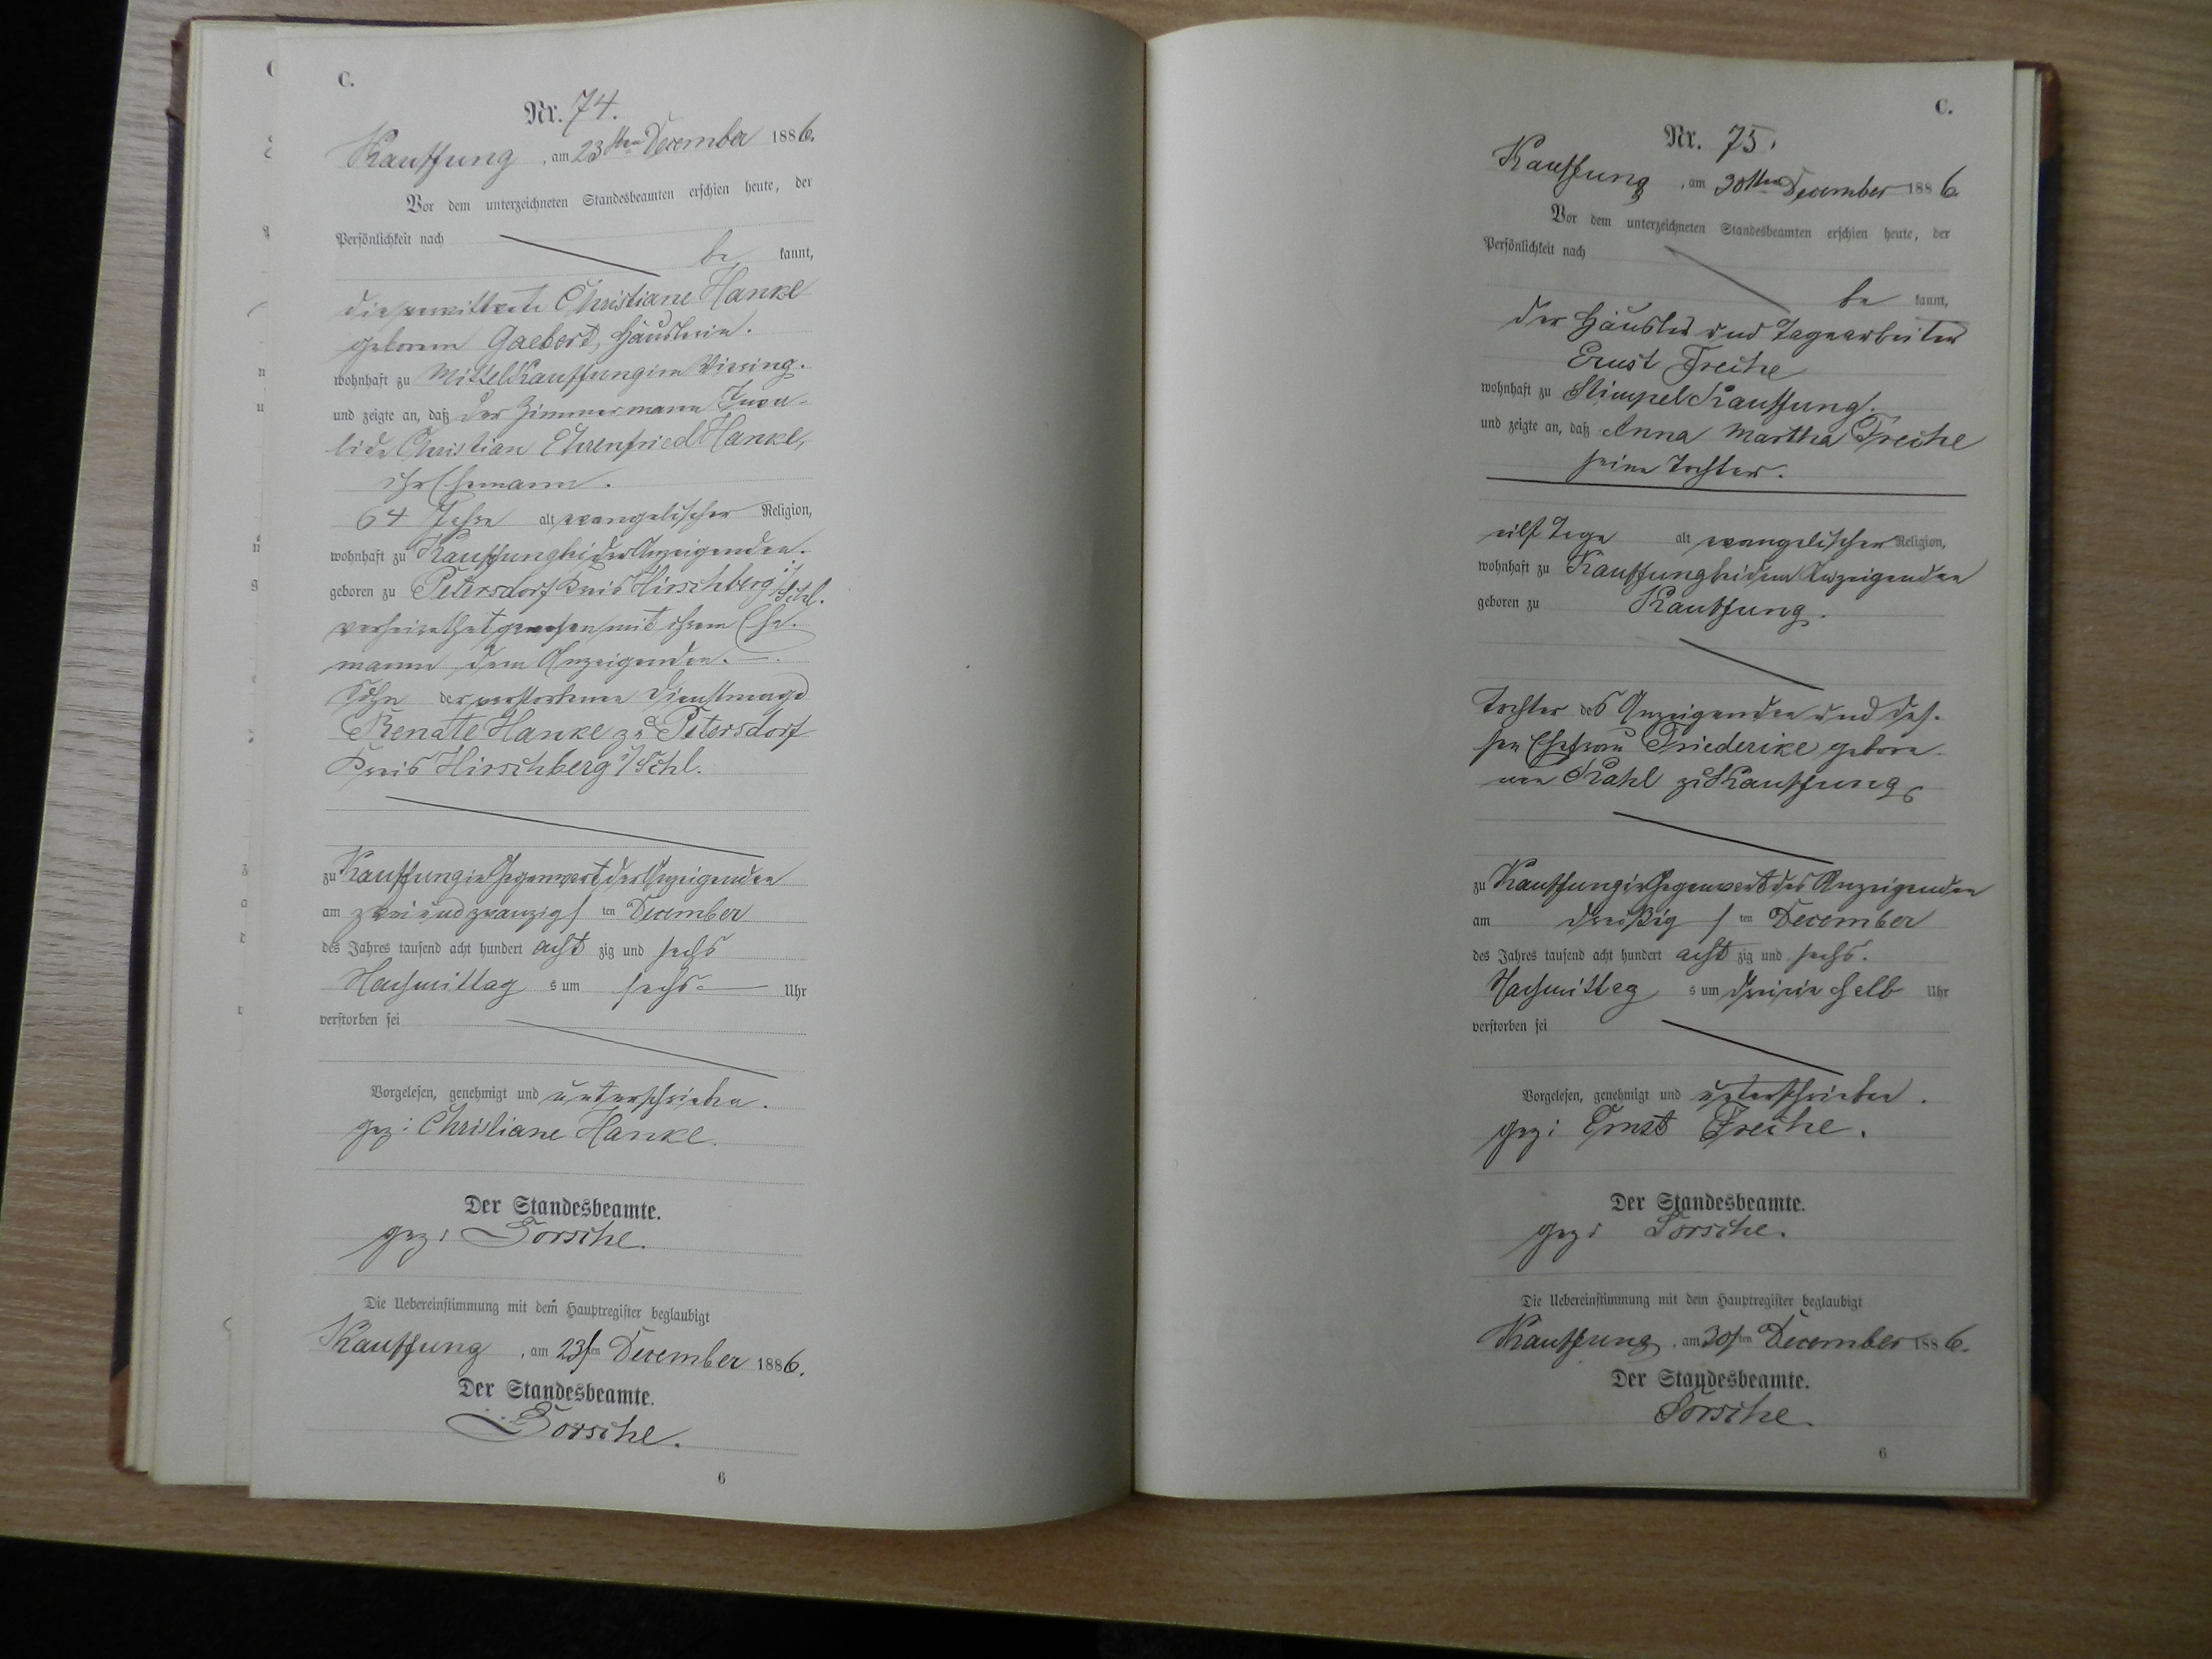 C.
Nr. 74.
Kauffung, am 23ten December 1886.
Vor dem unterzeichneten Standesbeamten erschien heute, der
Persönlichkeit nach
be kannt,
die verwittwete Christiane Hanke
geborene Gaebert, Häuslerin.
wohnhaft zu Mittel Kauffung im Viering.
und zeigte an, daß der Zimmermann Inva-
lide Christian Ehrenfried Hanke,
ihr Ehemann.
64 Jahre alt evangelischer Religion,
wohnhaft zu Kauffung bei der Anzeigenden.
geboren zu Petersdorf Kreis Hirschberg i/Schl.
verheirathet gewesen mit ihrem Ehe-
mann dem Anzeigenden.
Sohn der verstorbenen Dienstmagd
Renate Hanke zu Petersdorf
Kreis Hirschberg i/Schl.
zu Kauffung in Gegenwart der Anzeigenden
am zweiundzwanzigsten December
des Jahres tausend acht hundert acht zig und sechs
Nachmittags um sechs Uhr
verstorben sei
Vorgelesen, genehmigt und unterschrieben.
gez: Christiane Hanke.
Der Standesbeamte.
gez: Torsche.
Die Uebereinstimmung mit dem Hauptregister beglaubigt
Kauffung, am 23ten December 1886.
Der Standesbeamte.
Torsche.
6
C.
Nr. 75.
Kauffung, am 30ten December 1886
Vor dem unterzeichneten Standesbeamten erschien heute, der
Persönlichkeit nach
be kannt,
der Häusler und Tagearbeiter
Ernst Freche
wohnhaft zu Stimpel Kauffung.
und zeigte an, daß Anna Martha Freche
seine Tochter.
eilf Tage alt evangelischer Religion,
wohnhaft zu Kauffung bei dem Anzeigenden
geboren zu Kauffung.
Tochter des Anzeigenden und des-
sen Ehefrau Friederike gebore-
nen Rahl zu Kauffung
zu Kauffung in Gegenwart des Anzeigenden
am dreißigsten December
des Jahres tausend acht hundert acht zig und sechs.
Nachmittags um drei ein halb Uhr
verstorben sei
Vorgelesen, genehmigt und unterschrieben.
gez: Ernst Freche.
Der Standesbeamte.
gez: Torsche.
Die Uebereinstimmung mit dem Hauptregister beglaubigt
Kauffung, am 30ten December 1886.
Der Standesbeamte.
Torsche.
6